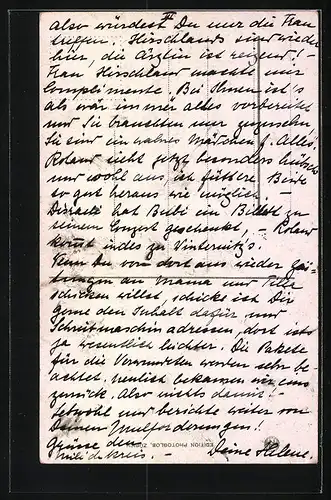 II
also würdest Du nur die Frau
treffen. Hirschlands sind wieder
hier, die Ärztin ist reizend! –
Frau Hirschland machte mir
Complimente. Bei Ihnen ist's
als wär immer alles vorbereitet
und Sie brauchten nur zuzusehn,
Sie sind ein wahres Mädchen f. Alles.
Roland sieht jetzt besonders hübsch
und wohl aus, ich füttere Beide
so gut heraus wie möglich –
Disraeli hat Bubi ein Billett zu
seinem Conzert geschenkt, – Roland
kommt indes zu Winternitz's.
Wenn Du von dort aus wieder
an Mama und
schicken willst, schicke ich Dir
gerne den Inhalt dafür und
Schreibmaschin adressen, dort ists
ja wesentlich leichter. Die Pakete
für die Verwandten werden sehr be-
achtet, neulich bekamen wir eins
zurück. Also nichts damit! –
Lebwohl und berichte weiter von
Deinen
Grüsse den
kreis. – Deine Helene.
EDITION PHOTOGLOB, ZÜRICH